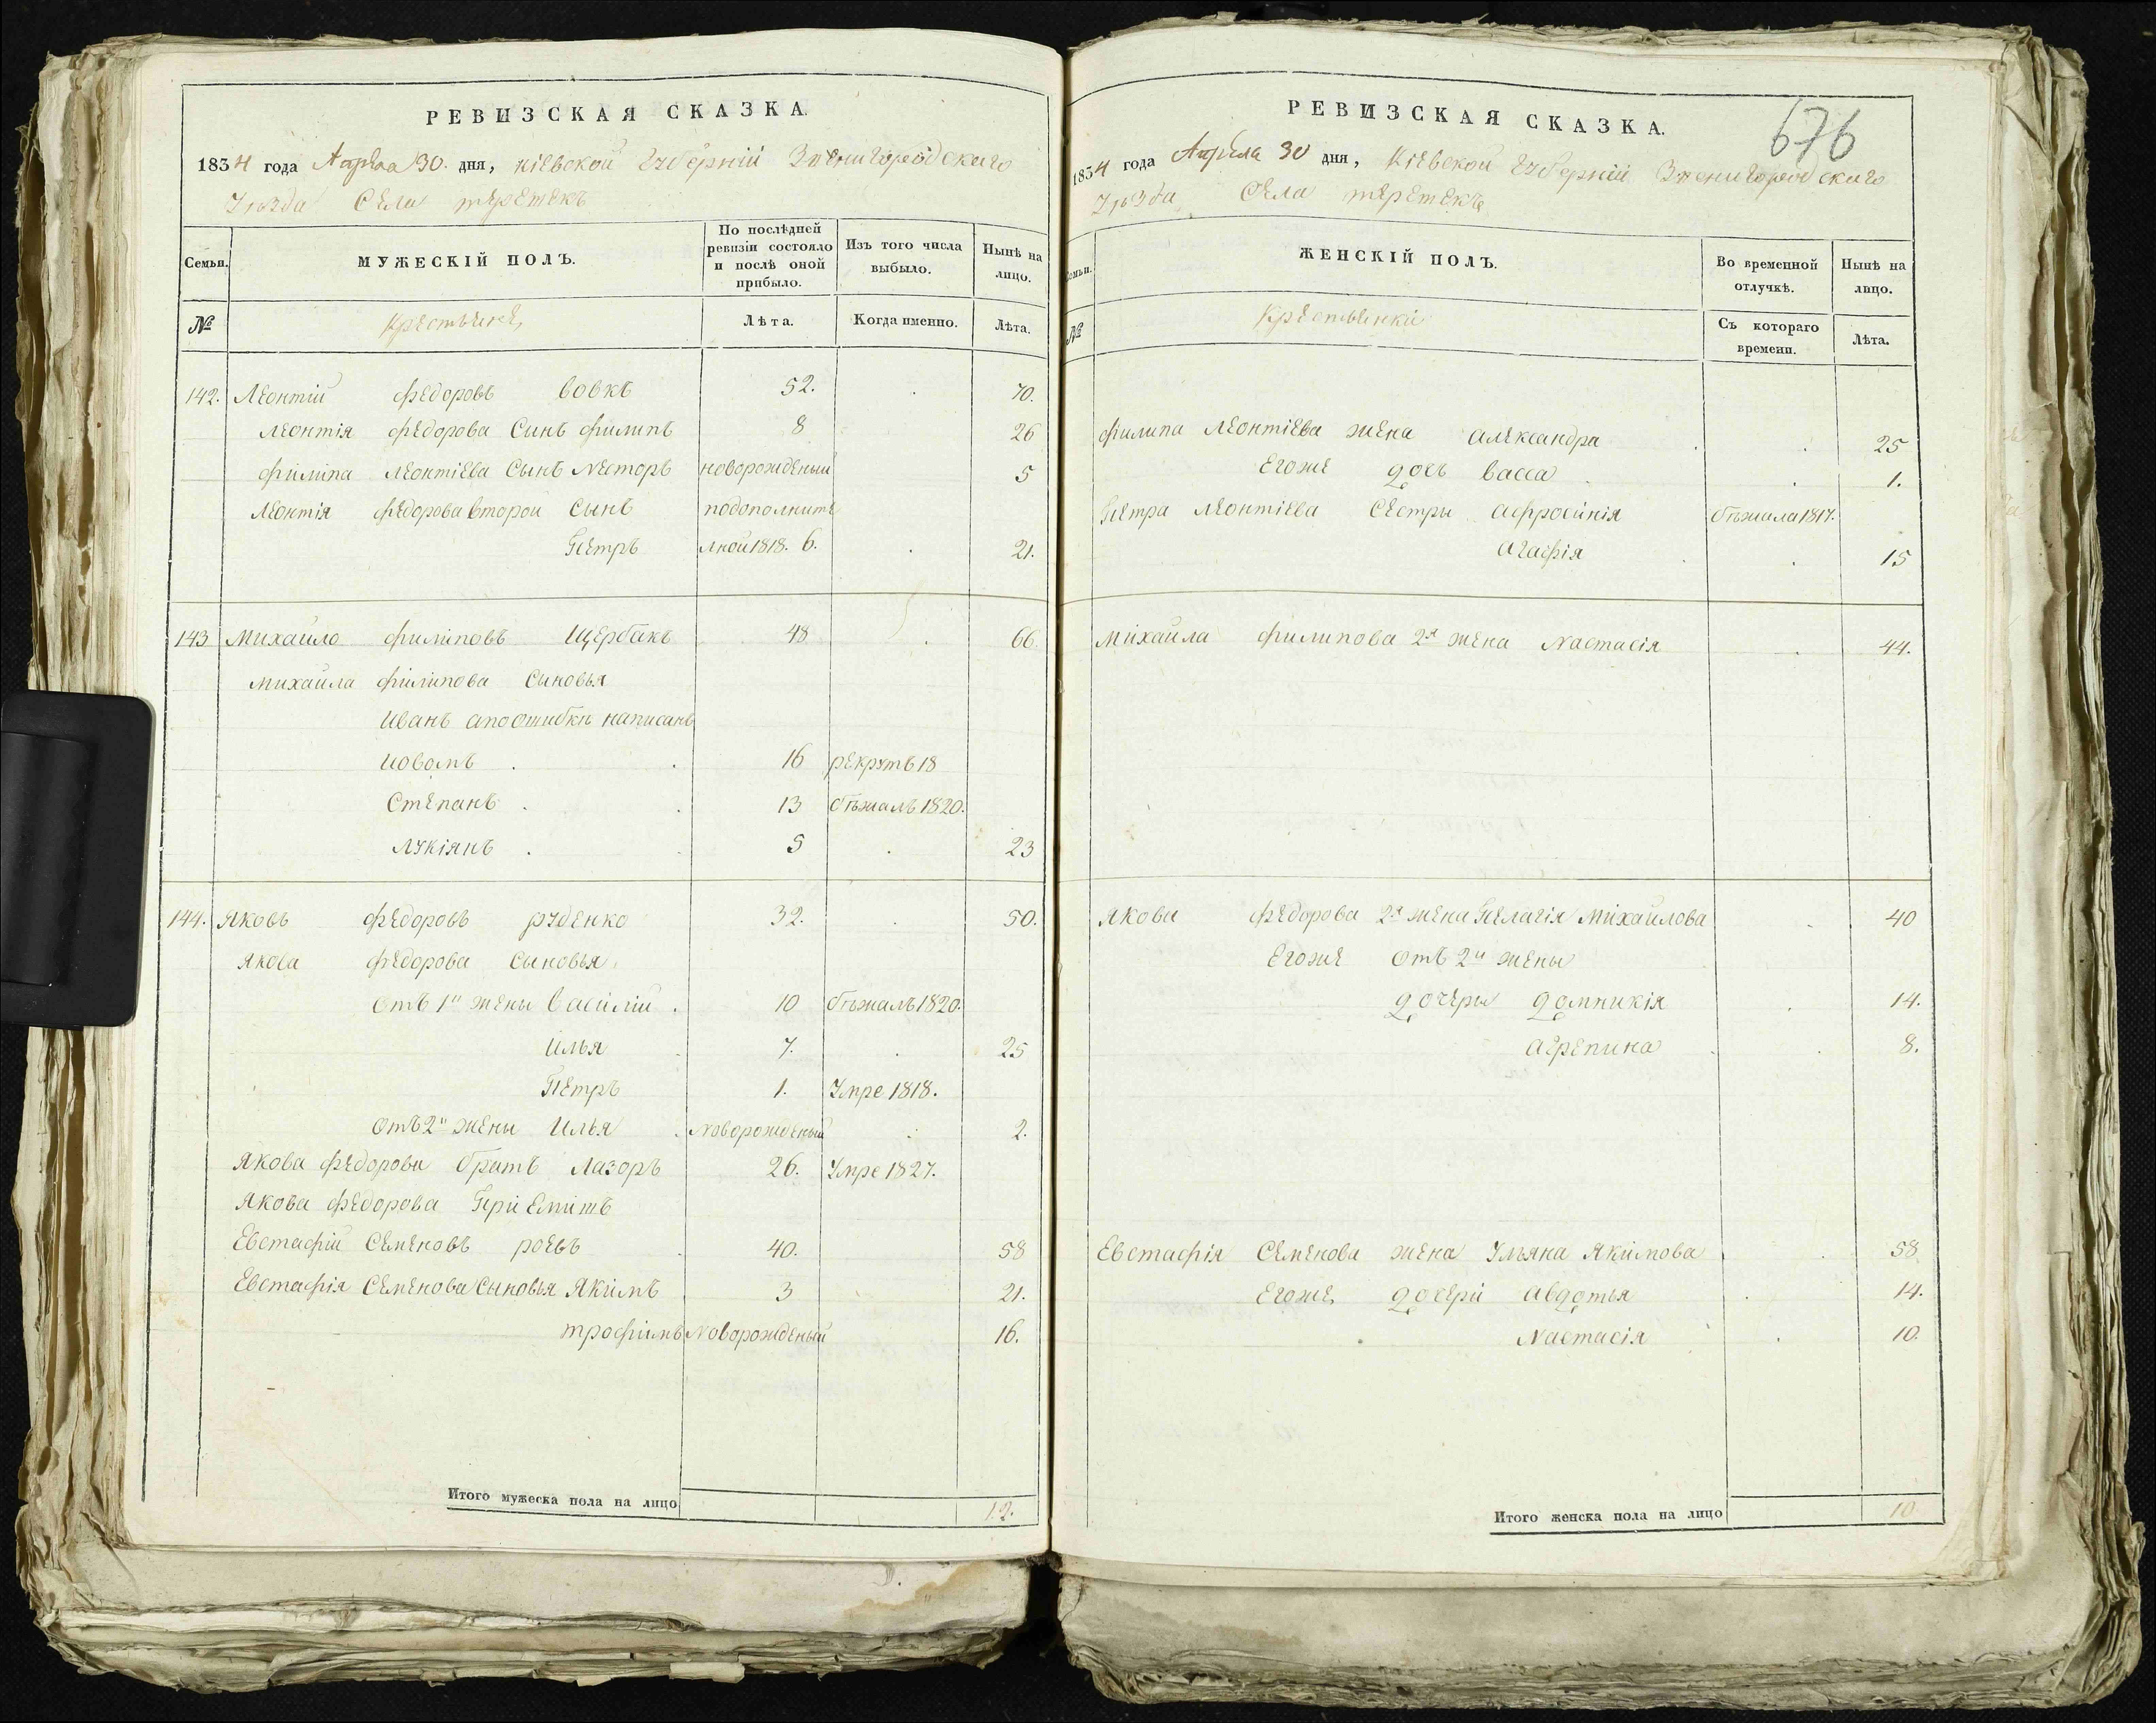 РЕВИЗСКАЯ СКАЗКА.
1834 года Апреля 30. дня, Кіевской Губерніи Звенигородскаго
Уѣзда Села Теретекъ
Семьи. МУЖЕСКІЙ ПОЛЪ. По послѣдней ревизіи состояло и послѣ оной прибыло. Изъ того числа выбыло. Нынѣ на лицо.
№ Крестьяне, Лѣта. Когда именно. Лѣта.
142. Леонтій Федоровъ Вовкъ 52. 70.
Леонтія Федорова Сынъ Филипъ 8 26
Филипа Леонтіева Сынъ Несторъ новорожденый 5
Леонтія Федорова второй Сынъ подополните
Петръ лной 1818. 6. 21.
143 Михайло Филиповъ Щербакъ 48 66.
Михайла Филипова Сыновья
Иванъ апоошибкѣ написанъ
Иованъ 16 рекрутъ 18
Степанъ 13 бѣжалъ 1820.
Лукіянъ 5 23
144. Яковъ Федоровъ Руденко 32. 50.
Якова Федорова Сыновья
отъ 1й жены Василій 10 бѣжалъ 1820.
Илья 7. 25
Петръ 1. Умре 1818.
отъ 2й жены Илья Новорожденый 2.
Якова Федорова братъ Лазоръ 26. Умре 1827.
Якова Федорова Пріемитъ
Евстафій Семеновъ Роевъ 40. 58
Евстафія Семенова Сыновья Якимъ 3 21.
Трофимъ Новорожденый 16.
Итого мужеска пола на лицо 12.
РЕВИЗСКАЯ СКАЗКА.
676
1834 года Апреля 30 дня, Кіевской Губерніи Звенигородскаго
Уѣзда Села Теретекъ
Семьи. ЖЕНСКІЙ ПОЛЪ. Во временной отлучкѣ. Нынѣ на лицо.
№ Крестьянки Съ котораго времени. Лѣта.
Филипа Леонтіева жена Александра 25
Егоже дочь Васса 1.
Петра Леонтіева Сестры Афросинія бѣжала 1817.
Агафія 15
Михайла Филипова 2я жена Настасія 44.
Якова Федорова 2я жена Пелагія Михайлова 40
Егоже отъ 2й жены
дочеры Домникія 14.
Агрепина 8.
Евстафія Семенова жена Ульяна Якимова 58
Егоже дочери Авдотья 14.
Настасія 10.
Итого женска пола на лицо 10